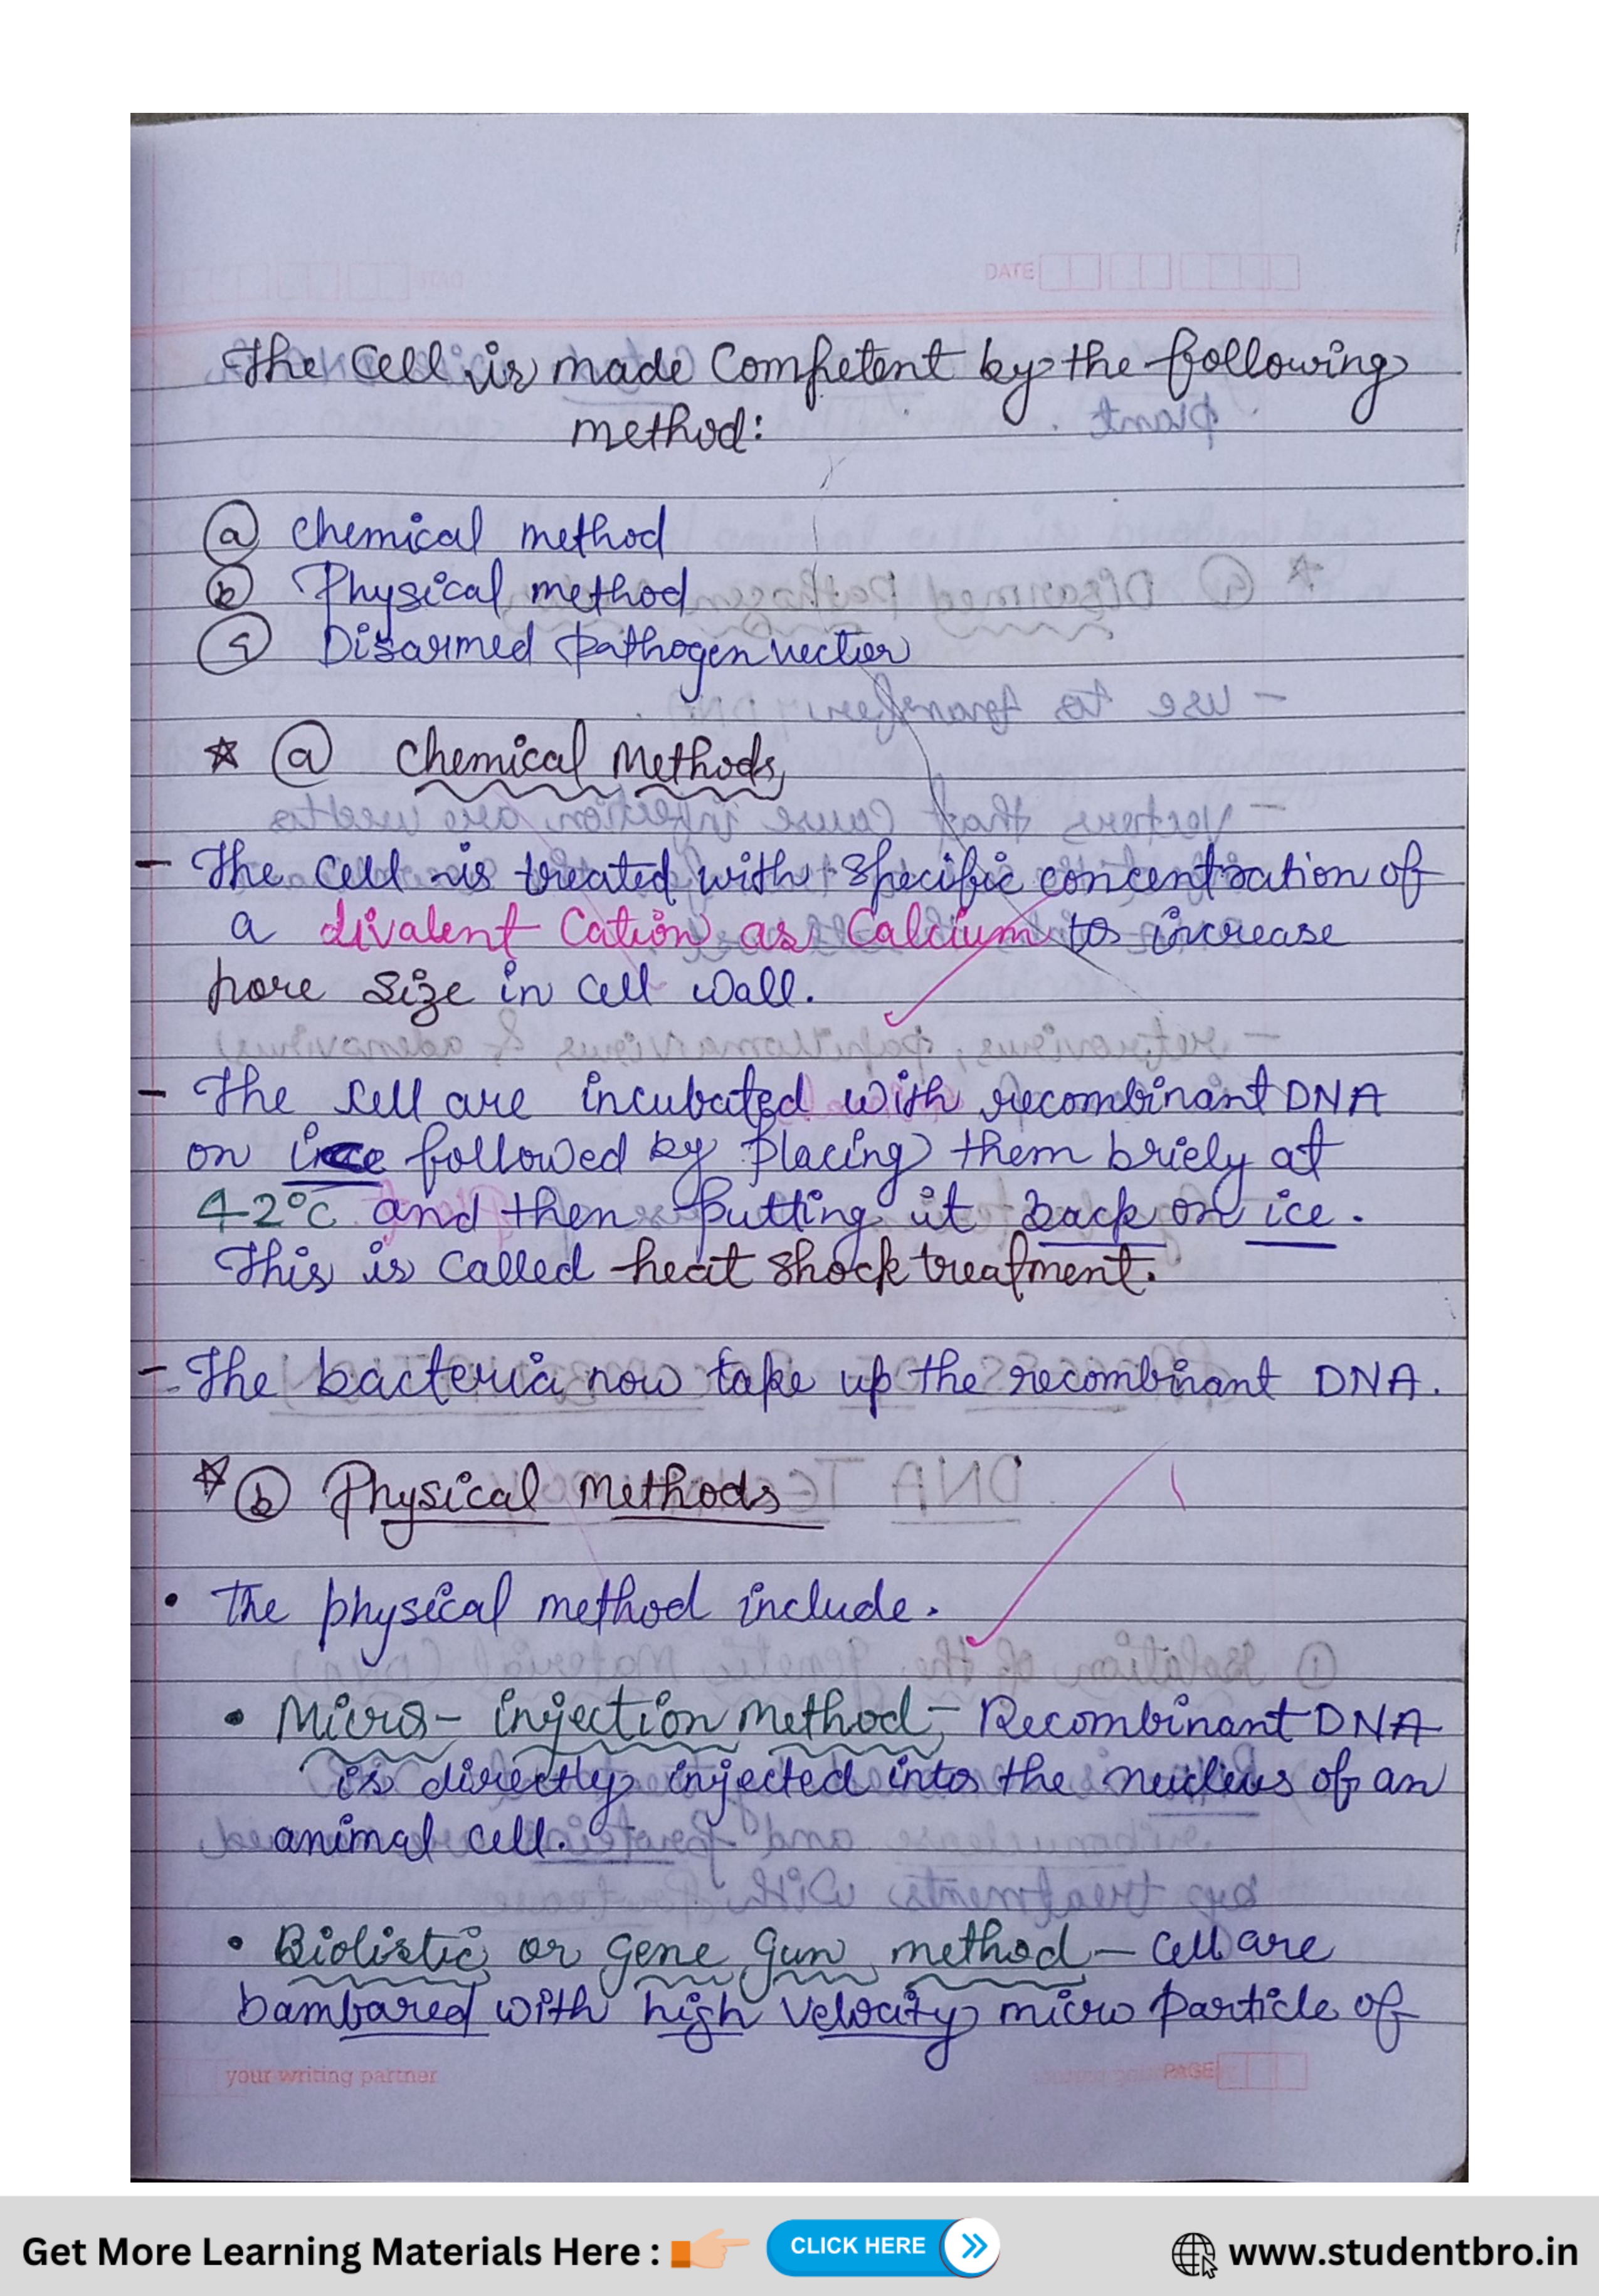 DATE
The Cell is made Competent by the following
method:
(a) chemical method
(b) Physical method
(c) Disarmed pathogen vector
☆ (a) Chemical Methods
- The cell is treated with specific concentration of
a divalent Cation as Calcium to increase
pore size in cell wall.
- The cell are incubated with recombinant DNA
on ice followed by placing them briely at
42°C and then putting it back on ice.
This is called heat shock treatment.
- The bacteria now take up the recombinant DNA.
☆ (b) Physical Methods
• The physical method include.
• Micro-injection method - Recombinant DNA
is directly injected into the nucleus of an
animal cell.
• Biolistic or gene gun method - cell are
bambared with high velocity micro particle of
your writing partner PAGE
Get More Learning Materials Here : CLICK HERE www.studentbro.in